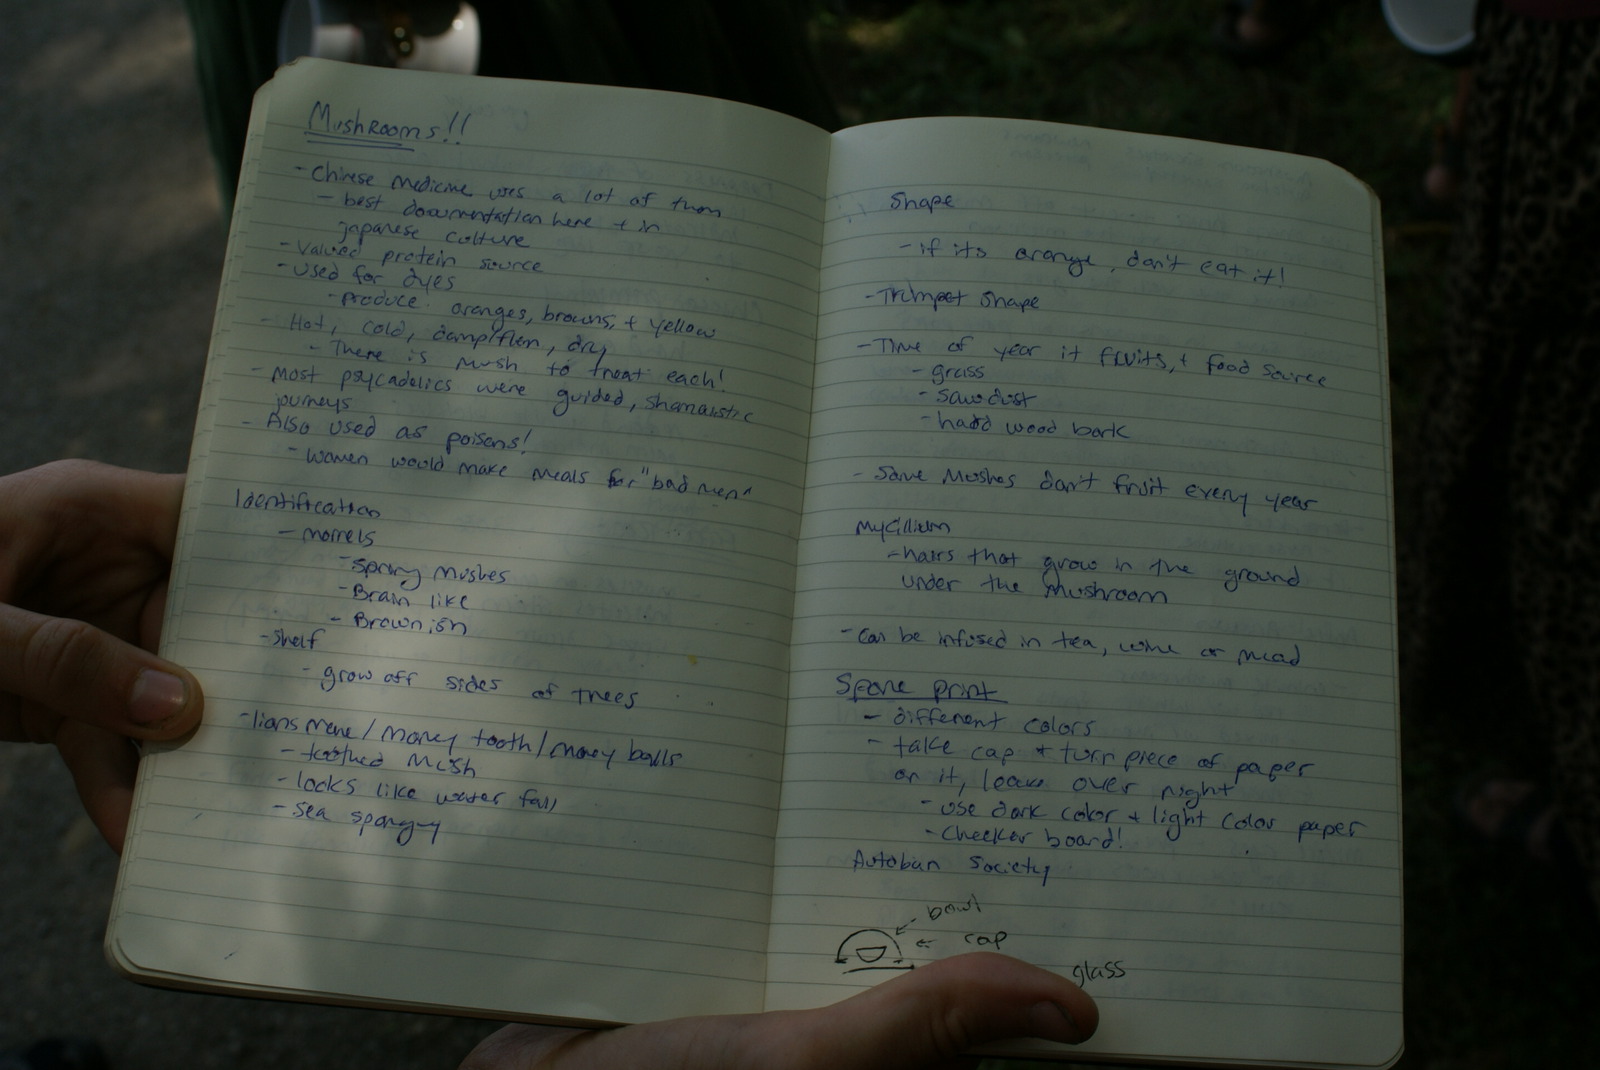 Mushrooms!!
- Chinese medicine uses a lot of them
- best documentation here + in
japanese culture
- Valued protein source
- Used for dyes
- produce: oranges, browns, + yellow
- Hot, cold, damp/flem, dry
- There is mush to treat each!
- Most psycadelics were guided, shamanistic
journeys
- Also used as poisons!
- women would make meals for "bad men"
Identification
- morrels
- Spring mushes
- Brain like
- Brownish
- Shelf
- grow off sides of trees
- lions mane / money tooth / money balls
- toothed mush
- looks like water fall
- Sea spongy
Shape
- if its orange, don't eat it!
- Trumpet shape
- Time of year it fruits, + food source
- grass
- sawdust
- hard wood bark
- Some mushes don't fruit every year
Mycillium
- hairs that grow in the ground
under the mushroom
- Can be infused in tea, wine or mead
Spore print
- different colors
- take cap + turn piece of paper
on it, leave over night
- use dark color + light color paper
- Checker board!
Autoban Society
bowl
cap
glass